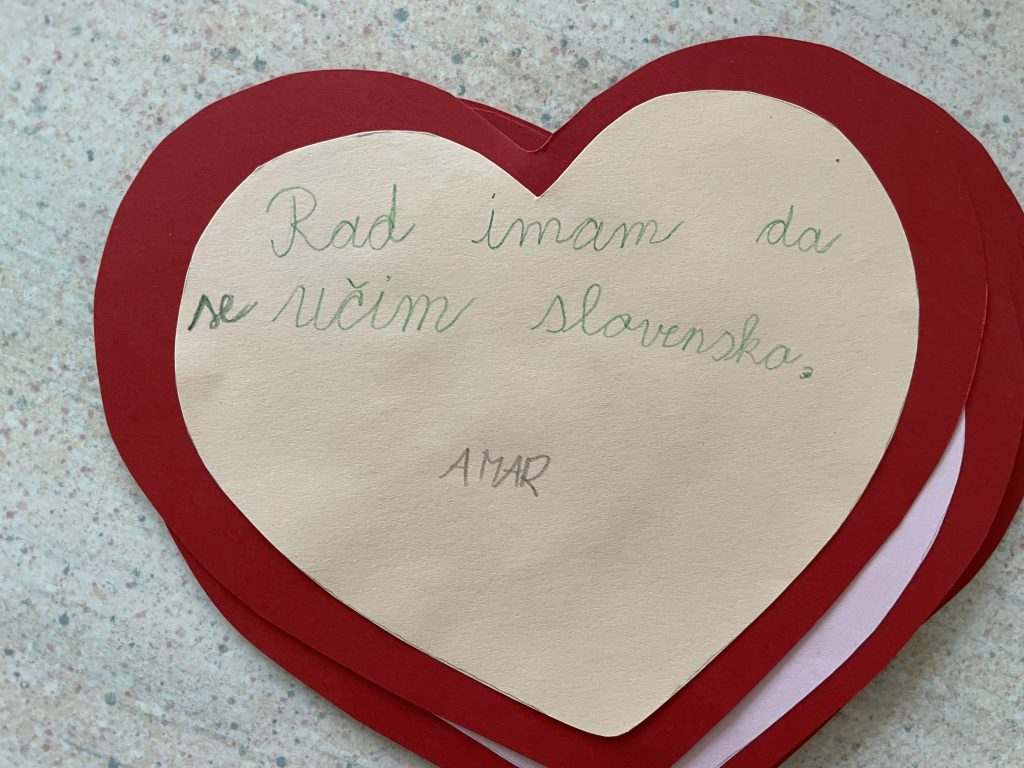 Rad imam da
se učim slovensko.
AMAR